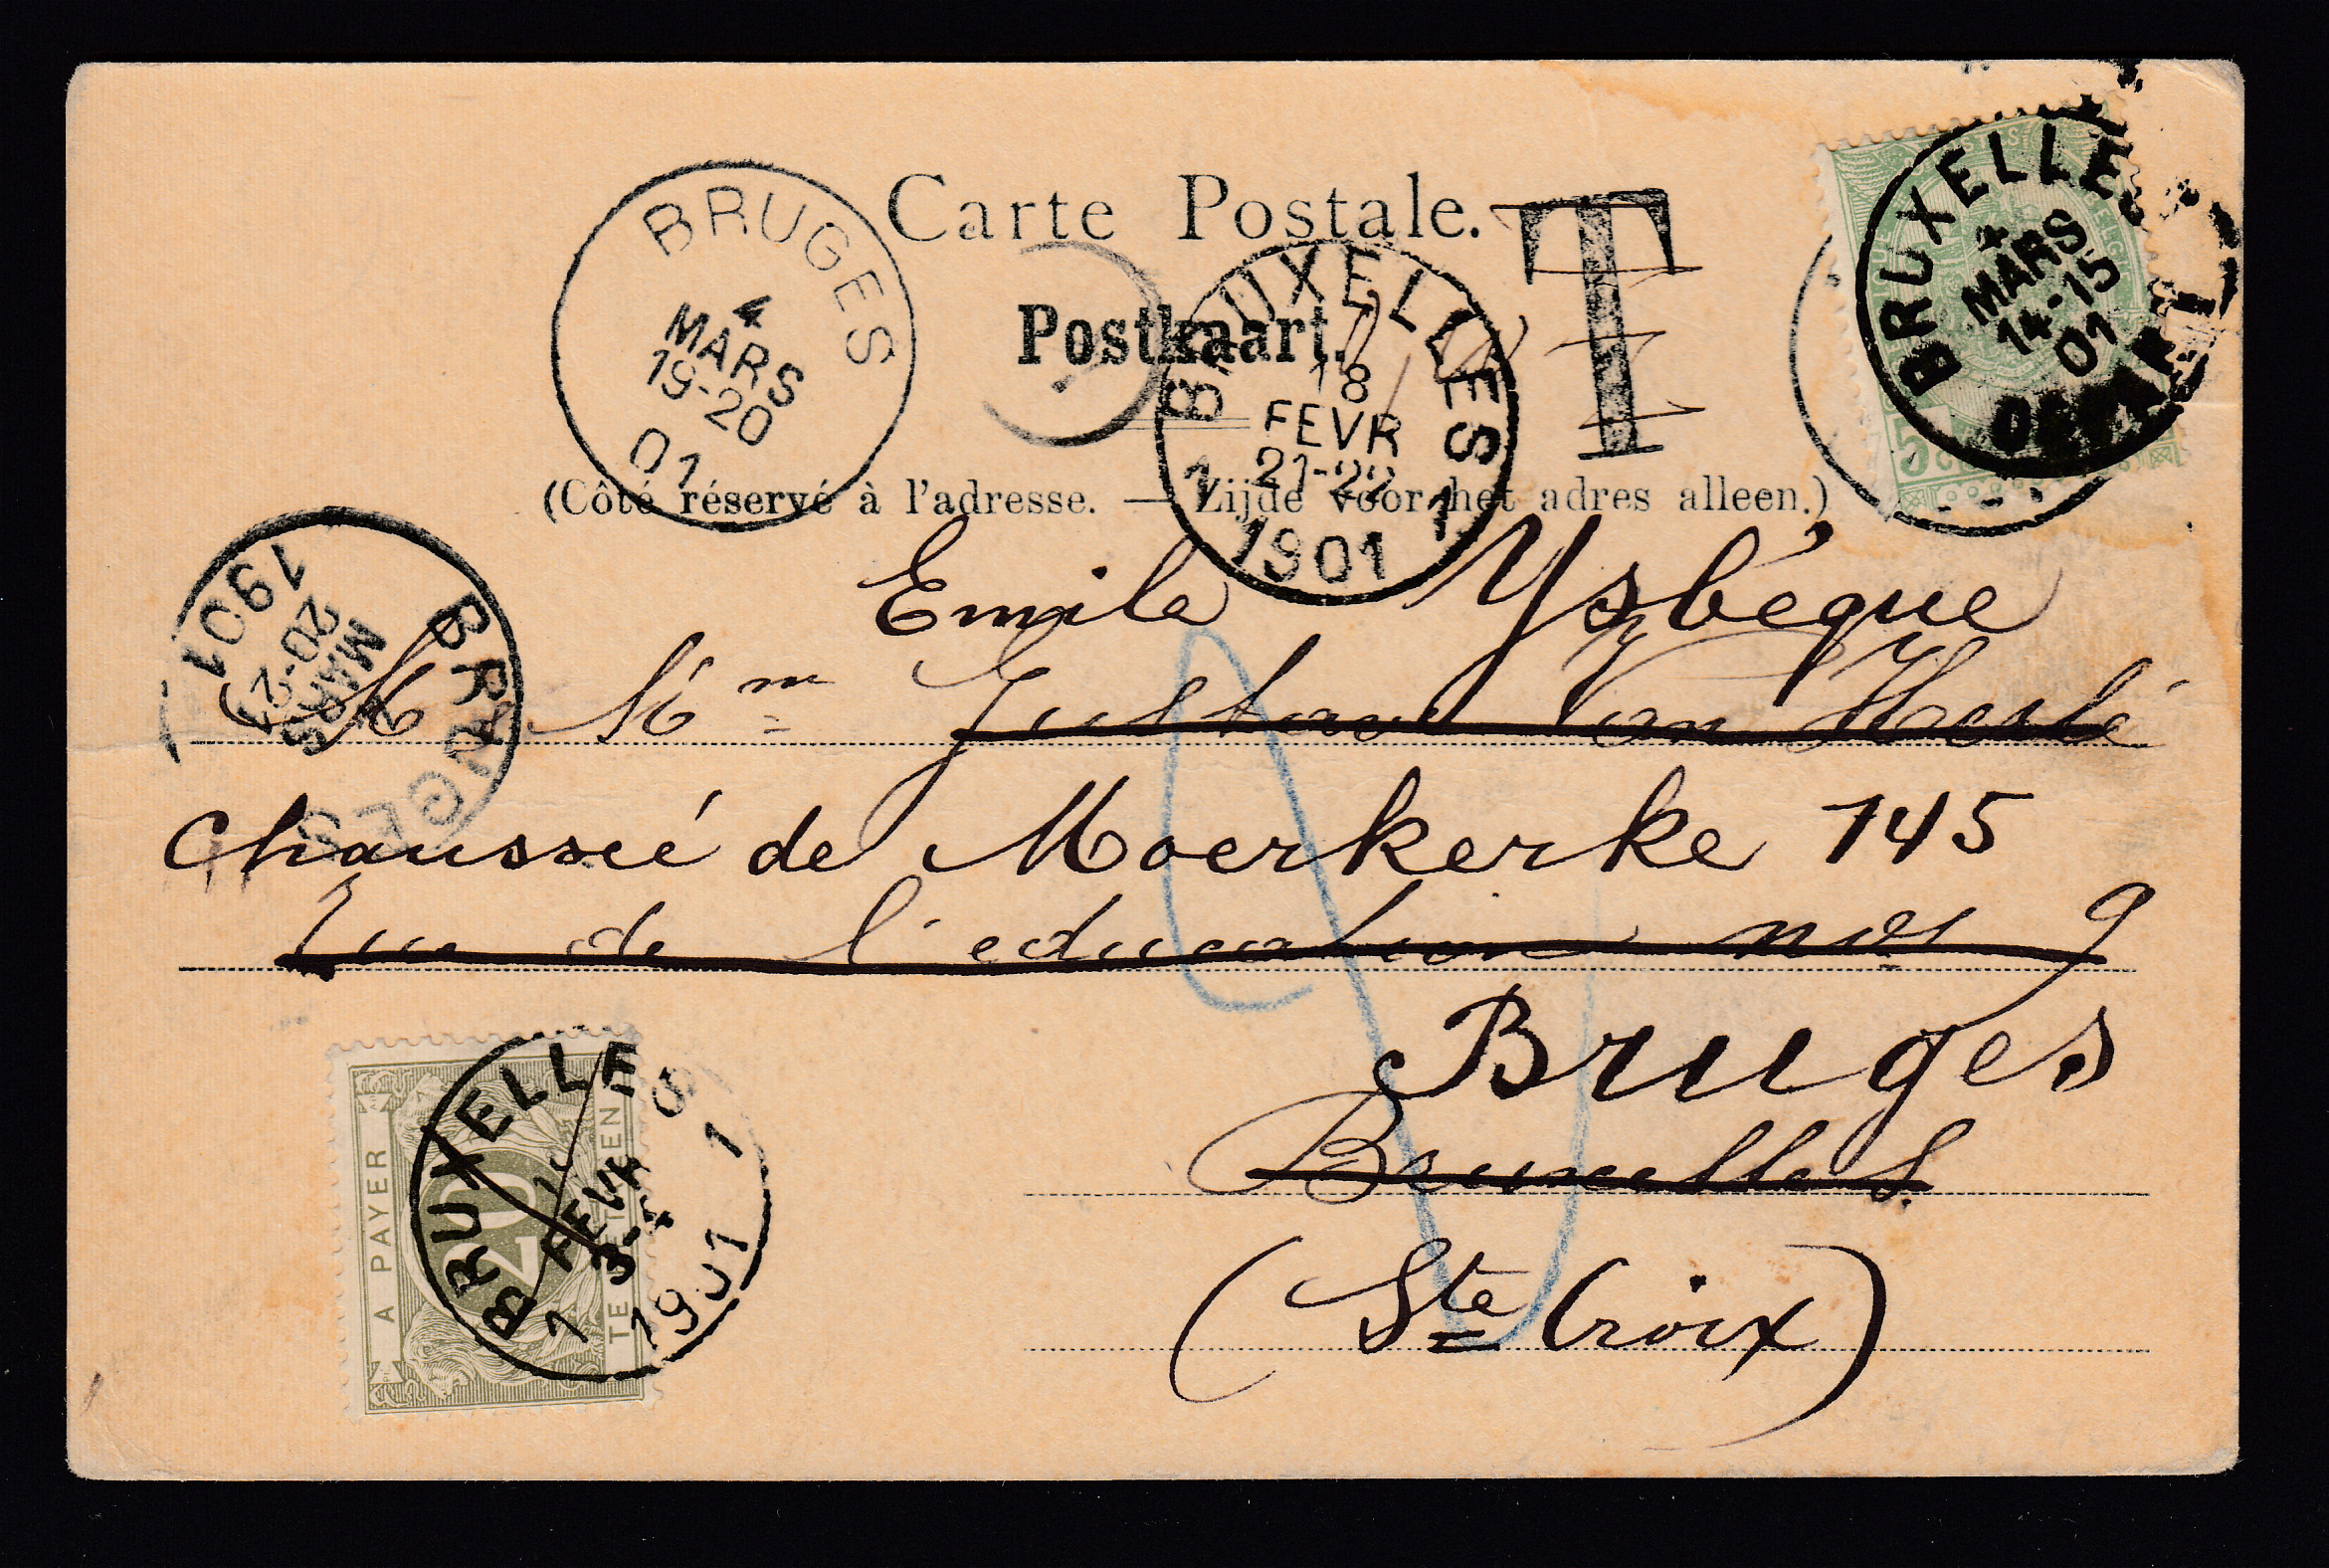 Carte Postale.
Postkaart.
(Côté réservé à l'adresse. — Zijde voor het adres alleen.)
T
BRUGES
4
MARS
19-20
01
BRUXELLES
18
FEVR
21-22
1 1
1901
BRUXELLES
4
MARS
14-15
01
5
BRUGES
MARS
20-21
1901
Emile Ysbèque
M Mm Gustave Van
Chausseé de Moerkerke 145
Rue de l'education nos 9
Bruges
Bruxelles.
(Ste Croix)
A PAYER
20
TE BETALEN
BRUXELLES
FEVR
3-4
1 1
1901